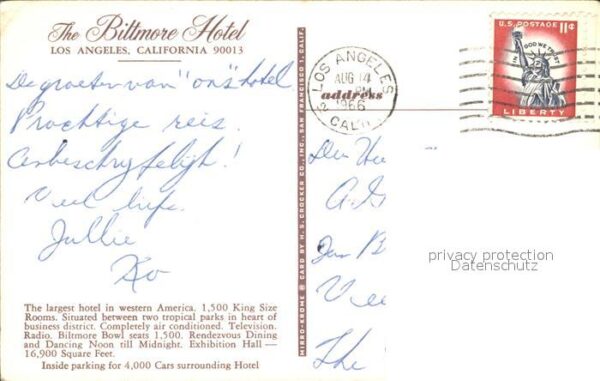 The Biltmore Hotel
LOS ANGELES, CALIFORNIA 90013
De groeten van "ons" hotel
Prachtige reis.
Onbeschryfelijk!
Veel liefs.
Jullie
Ko
The largest hotel in western America. 1,500 King Size
Rooms. Situated between two tropical parks in heart of
business district. Completely air conditioned. Television.
Radio. Biltmore Bowl seats 1,500. Rendezvous Dining
and Dancing Noon till Midnight. Exhibition Hall —
16,900 Square Feet.
Inside parking for 4,000 Cars surrounding Hotel
MIRRO-KROME ® CARD BY H. S. CROCKER CO., INC., SAN FRANCISCO 1, CALIF.
LOS ANGELES
AUG 14
PM
1966
CALIF
address
U.S. POSTAGE 11¢
IN GOD WE TRUST
LIBERTY
Den
Den
The
privacy protection
Datenschutz